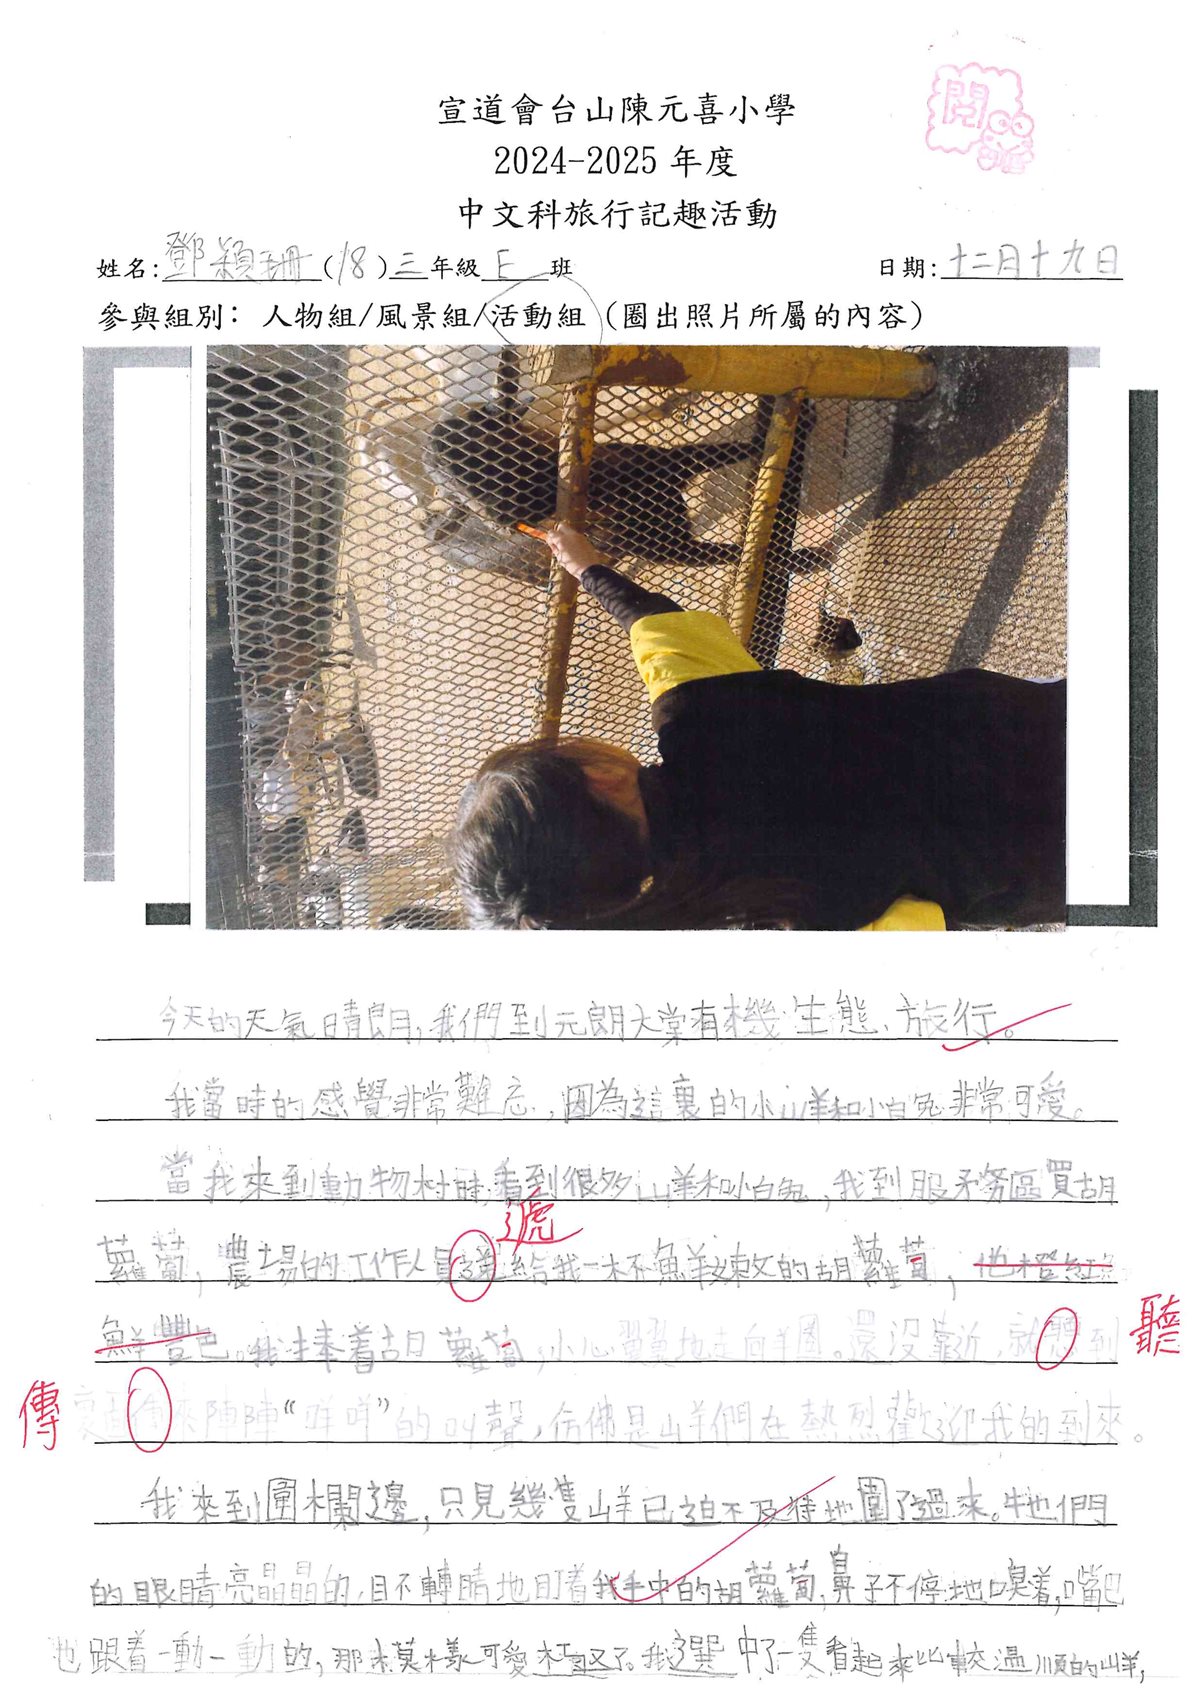 閱
宣道會台山陳元喜小學
2024-2025 年度
中文科旅行記趣活動
姓名:鄧穎珊(18)三年級E班 日期:十二月十九日
參與組別：人物組/風景組/活動組（圈出照片所屬的內容）
今天的天氣晴朗,我們到元朗大棠有機生態、旅行。
我當時的感覺非常難忘,因為這裏的小山羊和小白兔非常可愛。
當我來到動物村時,看到很多山羊和小白兔,我到服務區買胡
遞
蘿蔔,農場的工作人員 給我一杯 的胡蘿蔔,他橙紅
鮮豐色。我捧着胡蘿蔔,小心翼翼地走向羊圈。還沒靠近,就 到
聽
傳
裏面 來陣陣“咩咩”的叫聲,仿佛是山羊們在熱烈歡迎我的到來。
我來到圍欄邊,只見幾隻山羊已迫不及待地圍了過來。牠們
的眼睛亮晶晶的,目不轉睛地盯着我手中的胡蘿蔔,鼻子不停地嗅着,嘴巴
也跟着一動一動的,那模樣可愛極了。我選中了一隻看起來比較溫順的山羊,